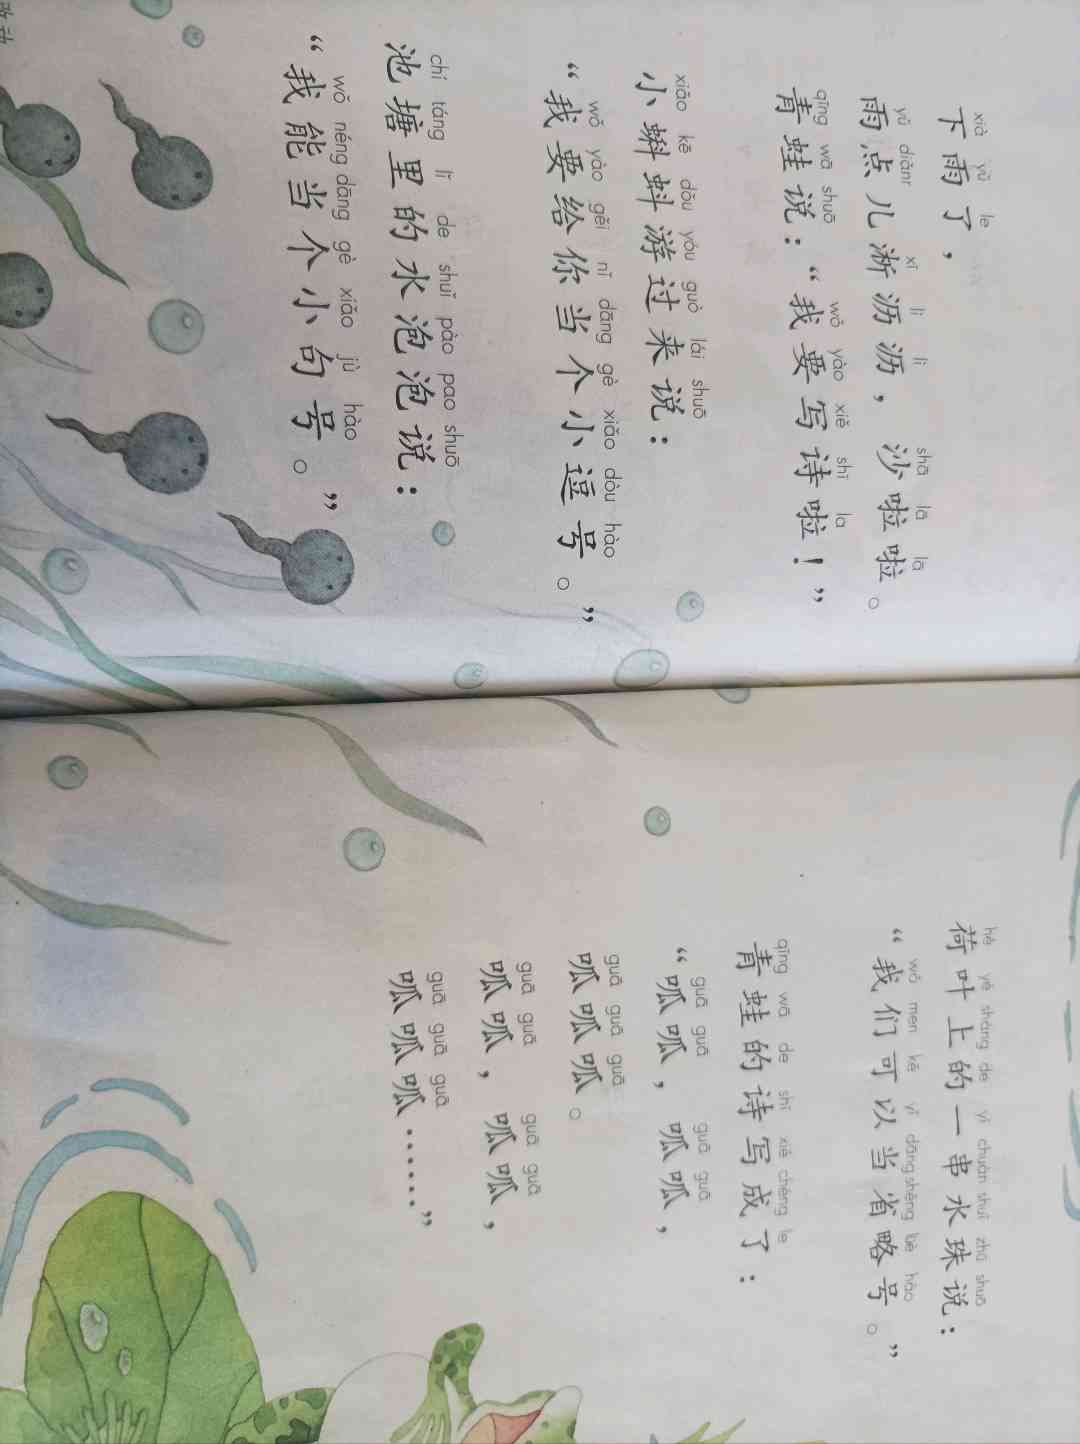 xià yǔ le
下雨了，
yǔ diǎnr xī lì lì shā lā lā
雨点儿淅沥沥，沙啦啦。
qīng wā shuō wǒ yào xiě shī la
青蛙说：“我要写诗啦！”
xiǎo kē dǒu yóu guò lái shuō
小蝌蚪游过来说：
wǒ yào gěi nǐ dāng gè xiǎo dòu hào
“我要给你当个小逗号。”
chí táng lǐ de shuǐ pào pao shuō
池塘里的水泡泡说：
wǒ néng dāng gè xiǎo jù hào
“我能当个小句号。”
hé yè shàng de yí chuàn shuǐ zhū shuō
荷叶上的一串水珠说：
wǒ men kě yǐ dāng shěng lüè hào
“我们可以当省略号。”
qīng wā de shī xiě chéng le
青蛙的诗写成了：
guā guā guā guā
“呱呱，呱呱，
guā guā guā
呱呱呱。
guā guā guā guā
呱呱，呱呱，
guā guā guā
呱呱呱……”